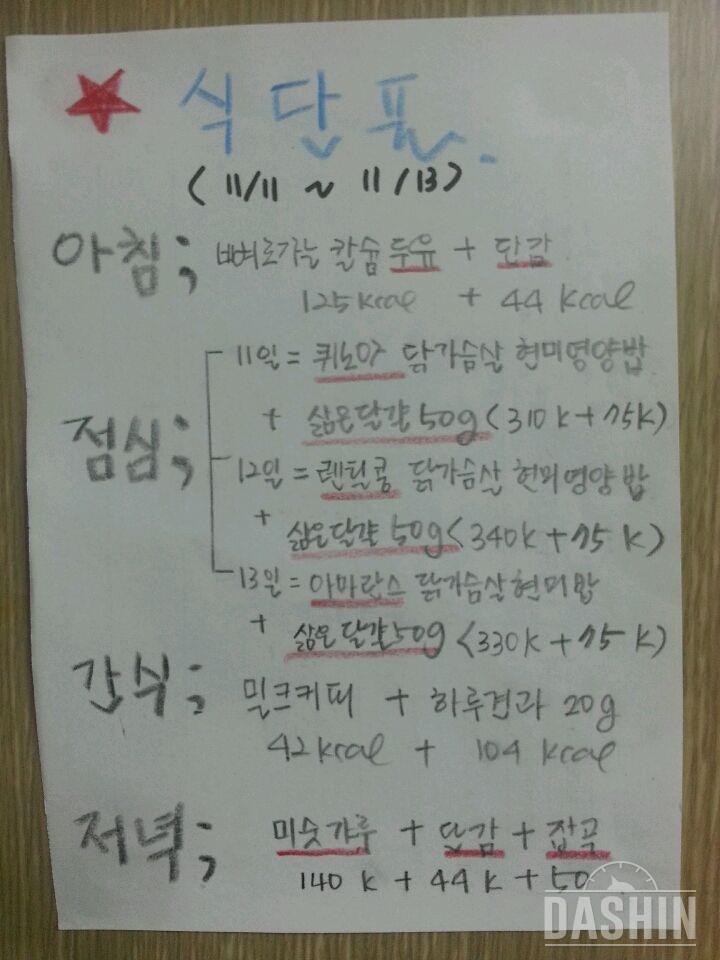 식단표.
(11/11 ~ 11/13)
아침; 뼈로가는 칼슘두유 + 단감
125kcal + 44 kcal
점심;
11일 = 퀴노아 닭가슴살 현미영양밥
+ 삶은달걀 50g (310k+75k)
12일 = 렌틸콩 닭가슴살 현미영양밥
+ 삶은달걀 50g (340k+75k)
13일 = 아마란스 닭가슴살현미밥
+ 삶은달걀50g (330k+75k)
간식; 밀크커피 + 하루견과 20g
42kcal + 104 kcal
저녁; 미숫가루 + 단감 + 잡곡
140 k + 44k + 50
DASHIN